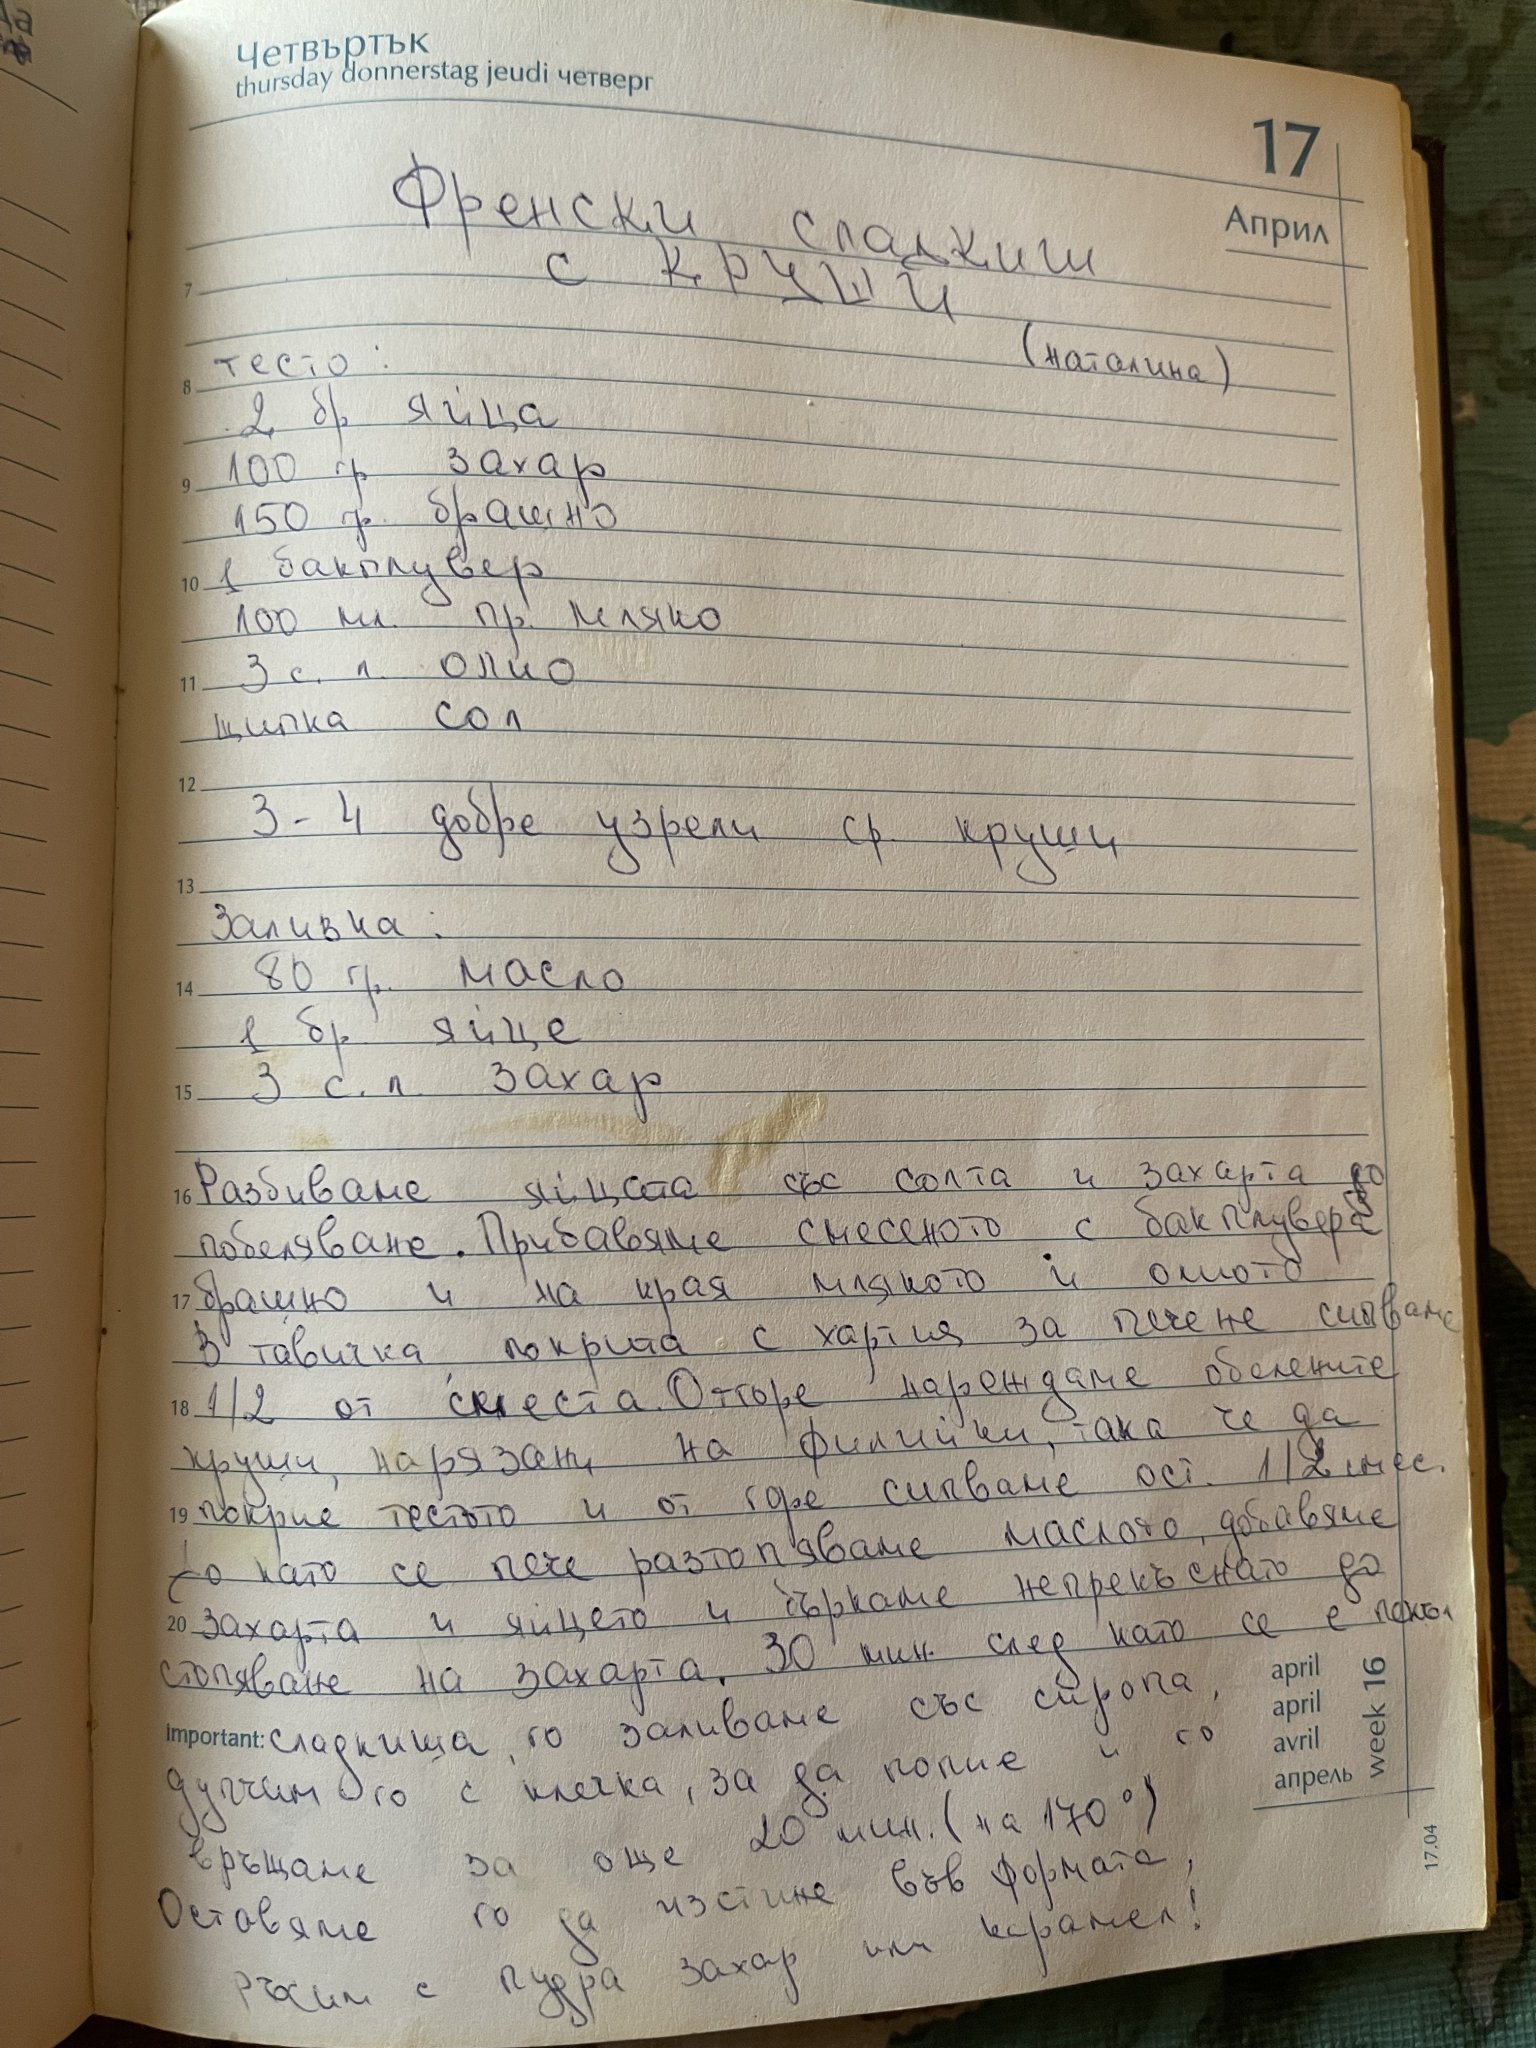 Четвъртък
thursday donnerstag jeudi четверг
17
Април
Френски сладкиш
с круши
(наталина)
7
тесто:
8
2 бр яйца
100 гр захар
9
150 гр. брашно
10
1 бакпулвер
100 мл. пр. мляко
11
3 с. л. олио
щипка сол
12
3-4 добре узрели ср. круши
13
Заливка:
80 гр. масло
14
1 бр яйце
3 с. л. захар
15
16 Разбиваме яйцата със солта и захарта до
побеляване. Прибавяме смесеното с бакпулвера
17 брашно и на края млякото и олиото
В тавичка покрита с хартия за печене сипваме
18 1/2 от сместа. Отгоре нареждаме обелените
круши, нарязани на филийки, така че да
19 покрие тестото и от горе сипваме ост. 1/2 смес.
като се пече разтопяваме маслото, добавяме
20 захарта и яйцето и бъркаме непрекъснато до
стопяване на захарта. 30 мин. след като се е
Important: сладкиша, го заливаме със сиропа,
дупчим го с клечка, за да попие и го
връщаме за още 20 мин. (на 170°)
Оставяме го да изстине във формата,
ръсим с пудра захар или карамел!
april
april
avril
апрель
week 16
17.04